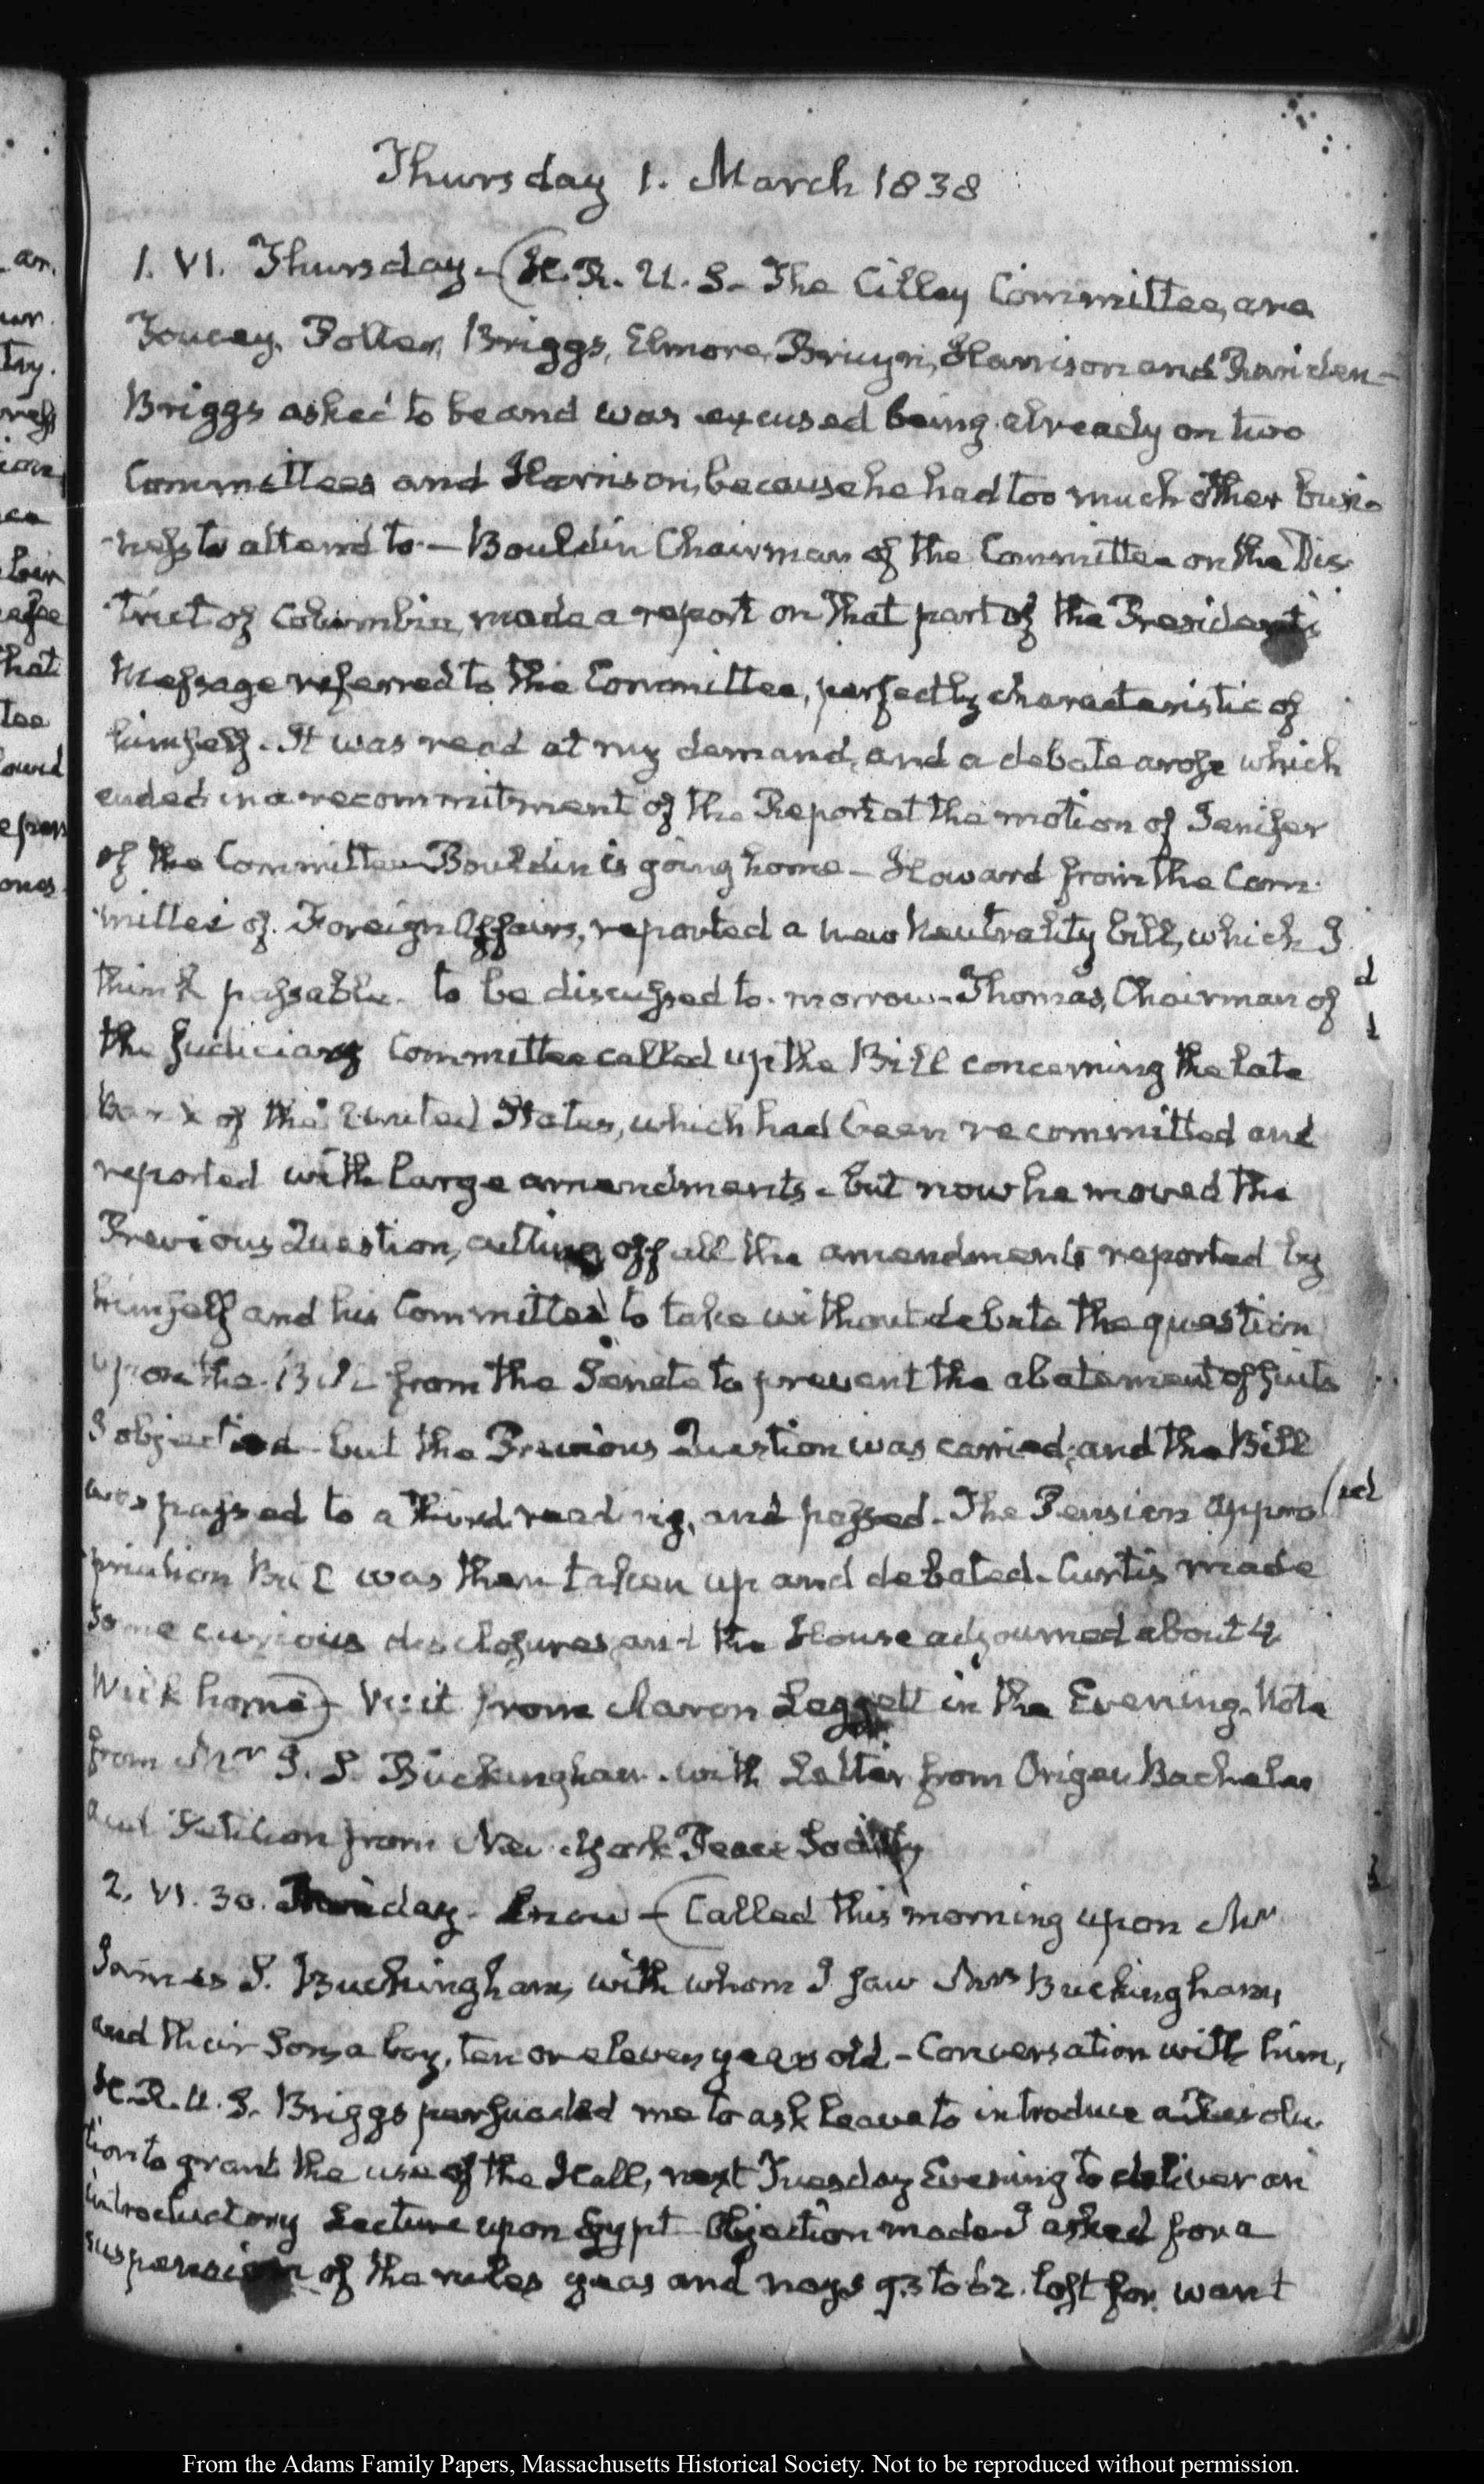 Thursday 1. March 1838
1. VI. Thursday – (H. R. U. S. – The Cilley Committee, are
Toucey, Potter, Briggs, Elmore, Bruyn, Harrison and Rariden –
Briggs asked to be and was excused being already on two
Committees and Harrison, because he had too much other busi-
ness to attend to – Bouldin Chairman of the Committee on the Dis-
trict of Columbia, made a report on that part of the President's
Message referred to the Committee, perfectly characteristic of
himself. It was read at my demand, and a debate arose which
ended in a recommitment of the Report at the motion of Jenifer
of the Committee – Bouldin is going home – Howard from the Com-
mittee of Foreign Affairs, reported a new Neutrality bill, which I
think passable. to be discussed to-morrow – Thomas, Chairman of
the Judiciary Committee called up the Bill concerning the late
Bank of the United States, which had been recommitted and
reported with large amendments – but now he moved the
Previous Question, cutting off all the amendments reported by
himself and his Committee to take without debate the question
upon the Bill from the Senate to prevent the abatement of suits
I objected – but the Previous Question was carried, and the Bill
was passed to a third reading, and passed – The Pension Appro-
priation Bill was then taken up and debated – Curtis made
some curious disclosures, and the House adjourned about 4
Walk home) – Visit from Aaron Leggett in the Evening. Note
from Mr J. S. Buckingham. with Letter from Origen Bachelar
and Petition from New-York Peace Society
2. VI. 30. Friday – Snow – (Called this morning upon Mr
James S. Buckingham, with whom I saw Mrs Buckingham,
and their Son, a boy, ten or eleven years old – Conversation with him,
H. R. U. S. Briggs persuaded me to ask leave to introduce a Resolu-
tion to grant the use of the Hall, next Tuesday Evening to deliver an
introductory Lecture upon Egypt – Objection made – I asked for a
suspension of the rules yeas and nays 93 to 62. lost for want
From the Adams Family Papers, Massachusetts Historical Society. Not to be reproduced without permission.